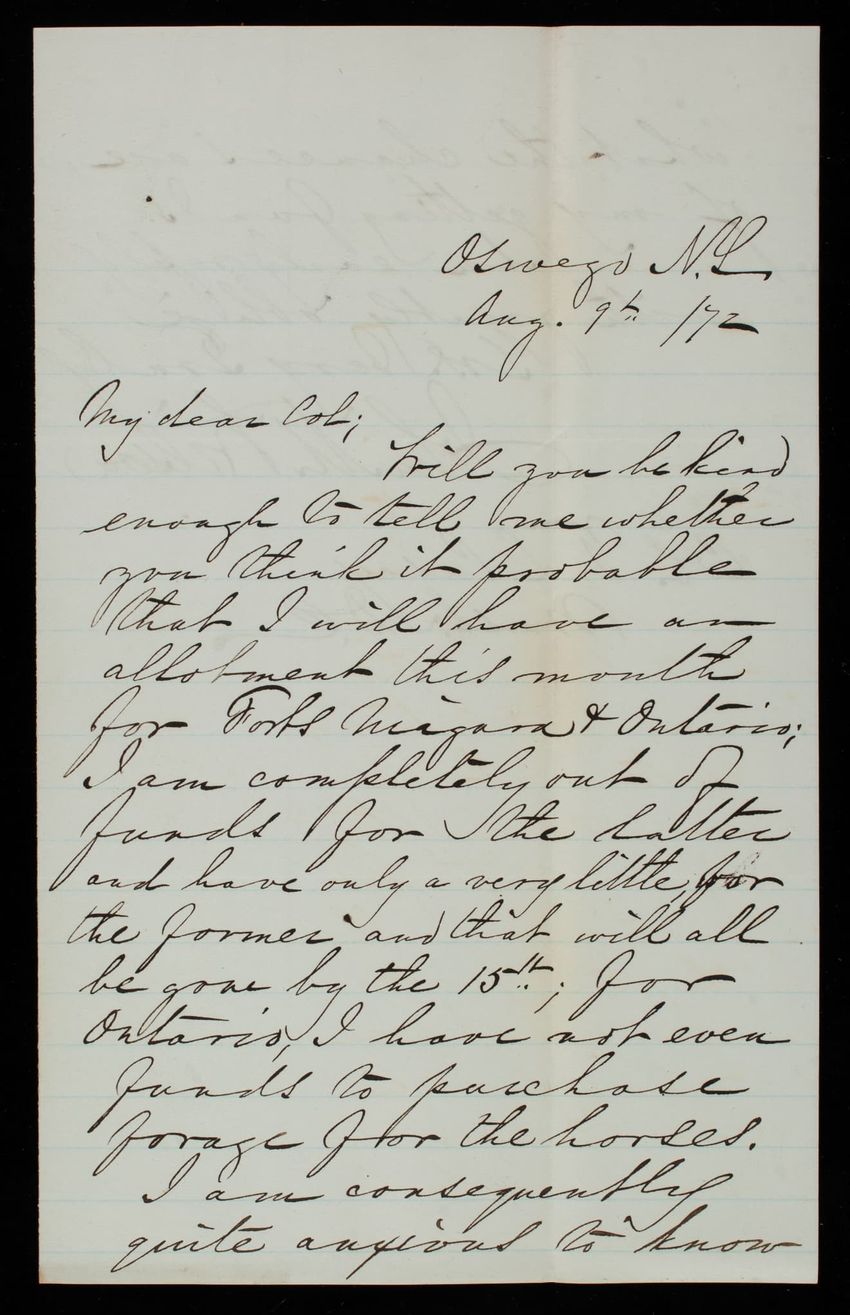 Oswego N.Y.
Aug. 9th /72
My dear Col;
Will you be kind
enough to tell me whether
you think it probable
that I will have an
allotment this month
for Forts Niagara & Ontario;
I am completely out of
funds for the latter
and have only a very little, for
the former and that will all
be gone by the 15th; for
Ontario, I have not even
funds to purchase
forage for the horses.
I am consequently
quite anxious to know